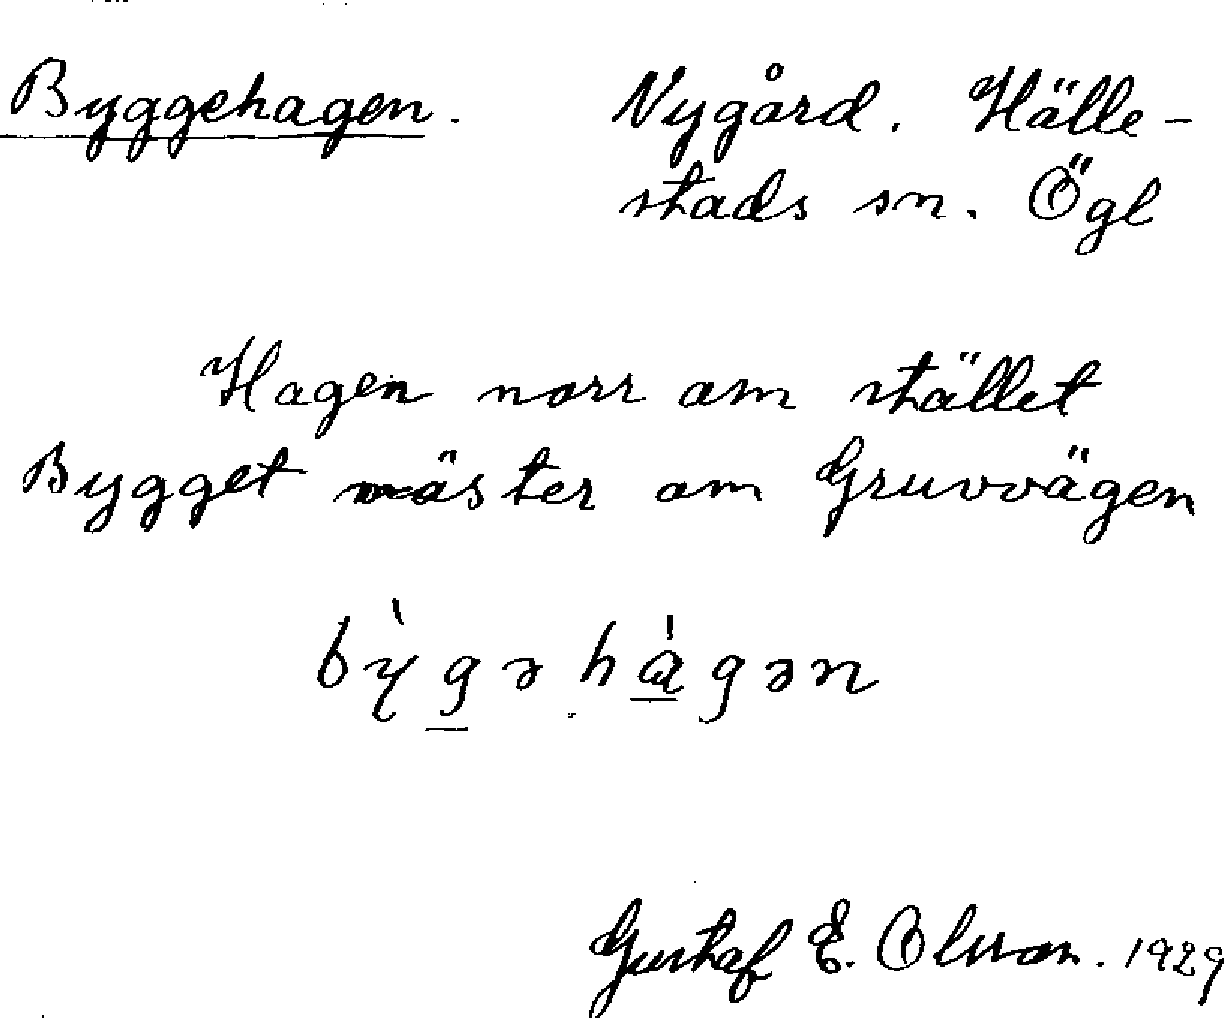 Byggehagen. Nygård. Hälle-
stads sn. Ögl
Hagen norr om stället
Bygget väster om Gruvvägen
bỳgəhágən
Gustaf E. Olsson. 1929